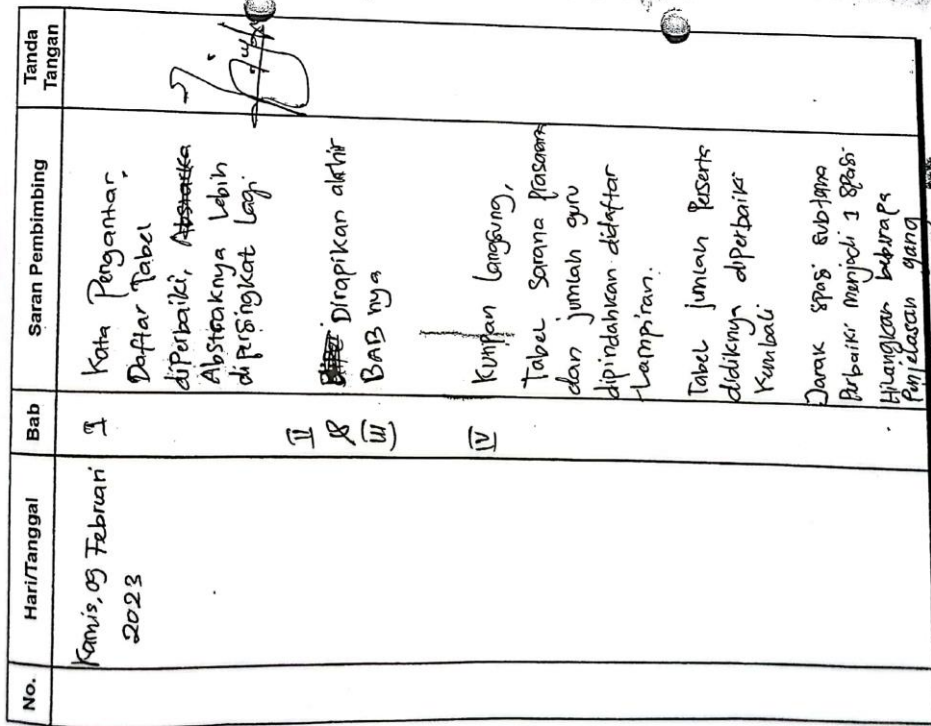 No.
Hari/Tanggal
Bab
Saran Pembimbing
Tanda
Tangan
Kamis, 09 Februari
2023
I
Kata Pengantar,
Daftar Tabel
diperbaiki, Abstraka
Abstraknya Lebih
dipersingkat Lagi
II
&
III
Dirapikan akhir
BAB nya
IV
Kutipan Langsung,
Tabel Sarana Prasarana
dan jumlah guru
dipindahkan didaftar
Lampiran.
Tabel jumlah Peserta
didiknya diperbaiki
Kembali
Jarak spasi subtema
Perbaiki menjadi 1 spasi
Hilangkan beberapa
Penjelasan yang